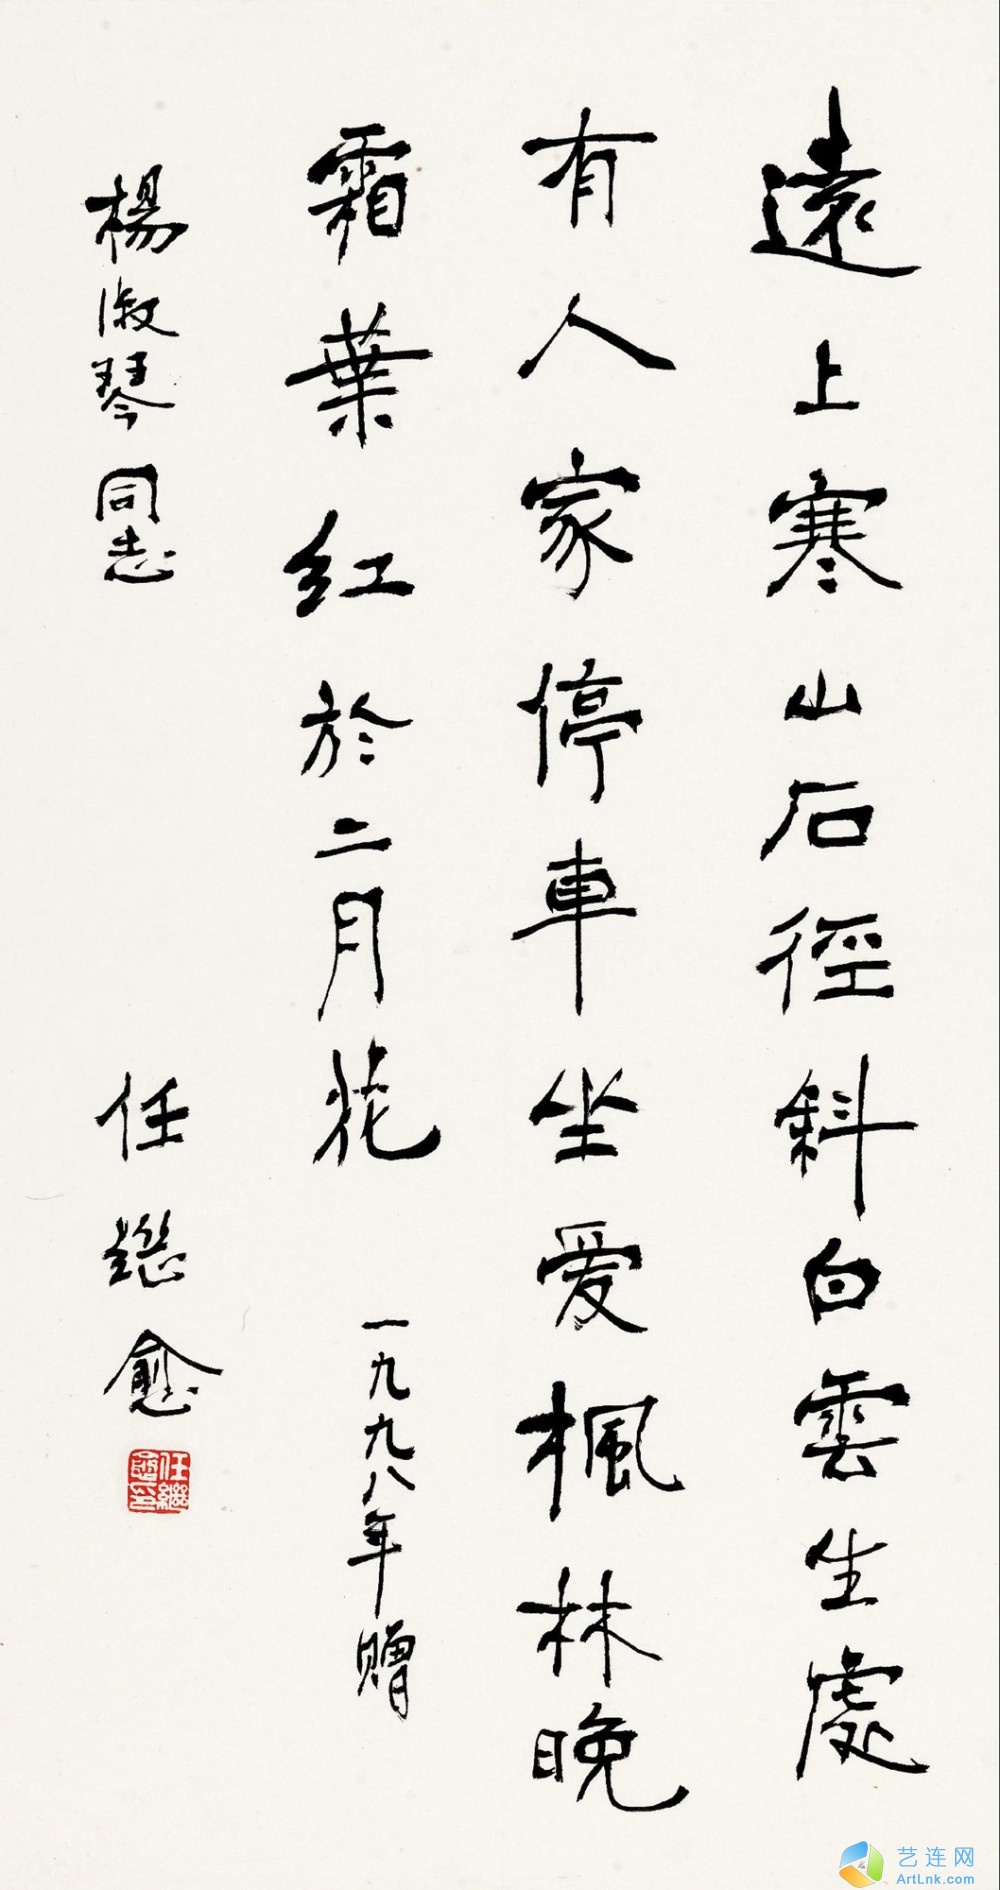 遠上寒山石徑斜白雲生處
有人家停車坐爱楓林晚
霜葉红於二月花
一九九八年赠
楊淑琴同志
任继愈
任繼愈印
艺连网
ArtLnk.com